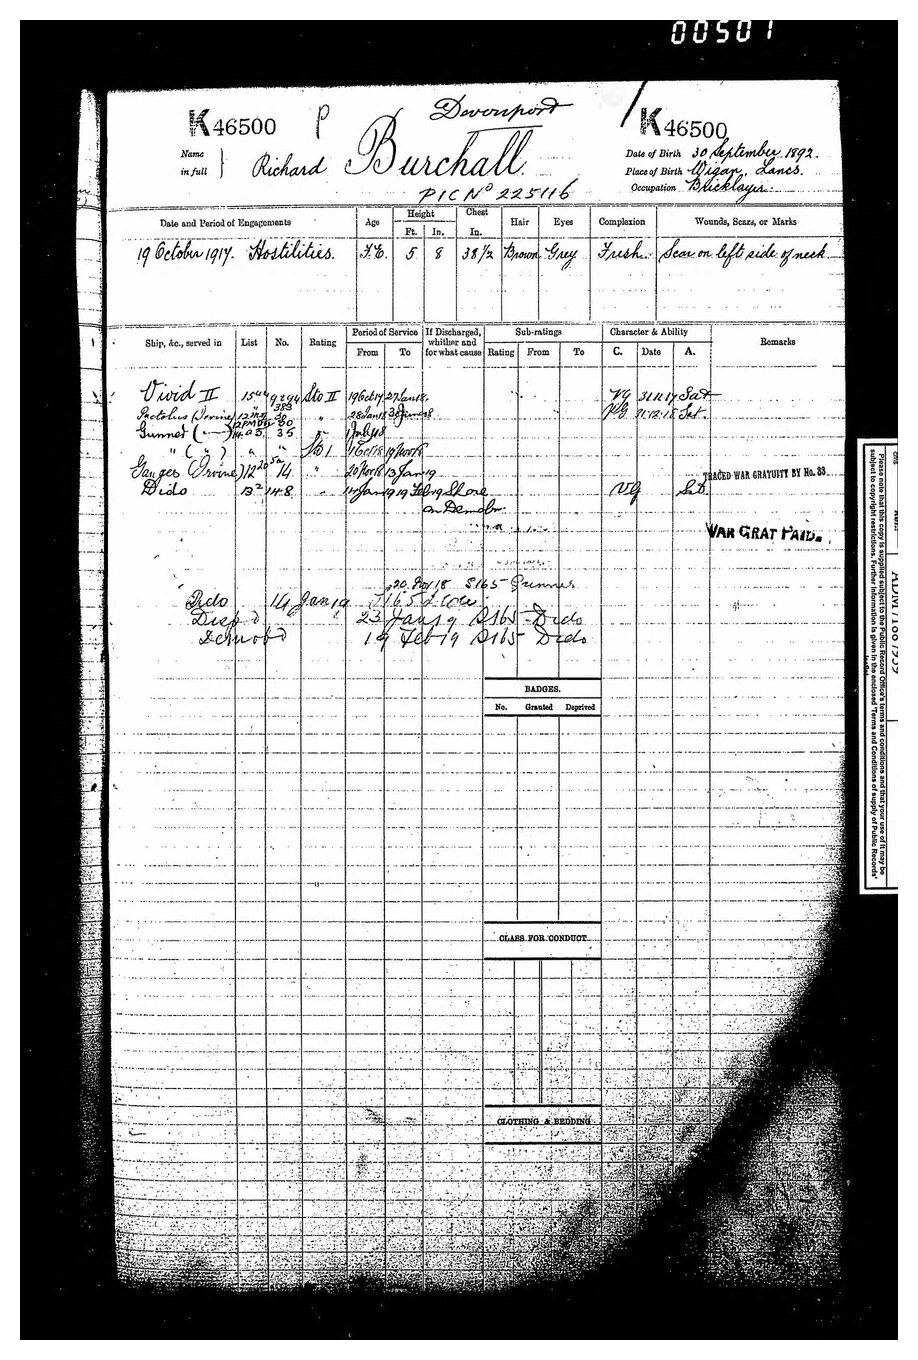 00501
K 46500 P Devonport K 46500
Name in full } Richard Burchall.
Date of Birth 30 September 1892.
Place of Birth Wigan, Lancs.
Occupation Bricklayer.
PIC No 225116
Date and Period of Engagements Age Height Ft. In. Chest In. Hair Eyes Complexion Wounds, Scars, or Marks
19 October 1917. Hostilities. F.C. 5 8 38 1/2 Brown Grey Fresh. Scar on left side of neck
Ship, &c., served in List No. Rating Period of Service From To If Discharged, whither and for what cause Sub-ratings Rating From To Character & Ability C. Date A. Remarks
Vivid II Sto II 19 Oct 17 27 Jan 18. VG 31.12.17 Sat
Pactolus (Irvine) 30 " 28 Jan 18 30 June 18 VG 31.12.18 Sat.
Gunner 35 1 July 18
" ( " ) " " Sto 1 1 Oct 18 19 Nov 18
Ganges (Irvine) 14 " 20 Nov 18 13 Jan 19
TRACED WAR GRATUITY BY No. 33
Dido 148 " 14 Jan 19 19 Feb 19 Shore VG Sat
on Demobn.
WAR GRAT PAID.
20 Nov 18 S165 Gunner
Dido 14 Jan 19
Disp d 23 Jan 19 S165 Dido
Demob d 19 Feb 19 S165 Dido
BADGES.
No. Granted Deprived
CLASS FOR CONDUCT.
CLOTHING & BEDDING
Please note that this copy is supplied subject to the Public Record Office's terms and conditions and that your use of it may be
subject to copyright restrictions. Further information is given in the enclosed 'Terms and Conditions of supply of Public Records'